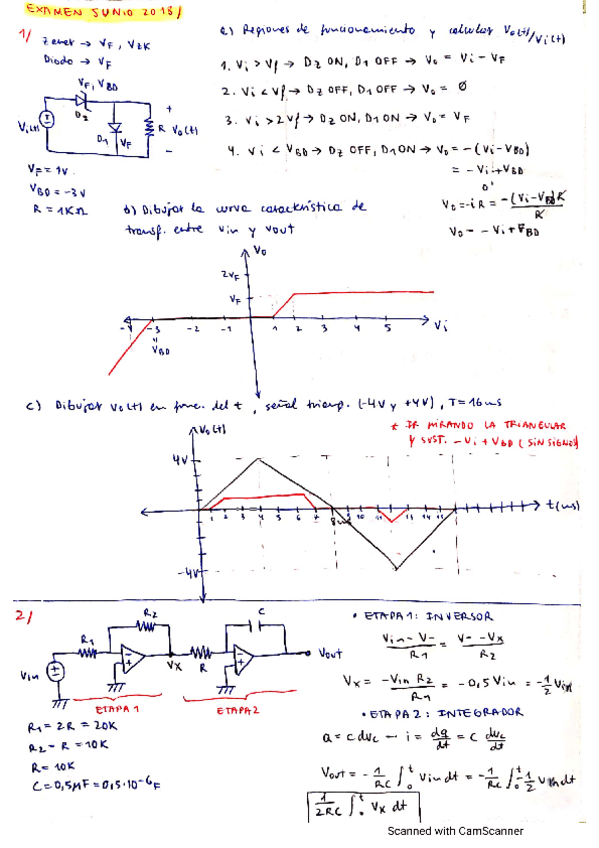 EXAMEN JUNIO 2018/
1/
Zener → VF, VZK
Diodo → VF
VF, VBD
Vi(t)
DZ
D1
VF
R
+
Vo(t)
-
VF = 1V
VBD = -3V
R = 1KΩ
a) Regiones de funcionamiento y calcular Vo(t)/Vi(t)
1. Vi > Vf → DZ ON, D1 OFF → Vo = Vi - VF
2. Vi < Vf → DZ OFF, D1 OFF → Vo = Ø
3. Vi > 2Vf → DZ ON, D1 ON → Vo = VF
4. Vi < VBD → DZ OFF, D1 ON → Vo = -(Vi - VBD)
= -Vi + VBD
Vo = -iR = -(Vi - VBD)R / R
Vo = -Vi + VBD
b) Dibujar la curva característica de
transf. entre vin y vout
Vo
2VF
VF
-4 -3 -2 -1 1 2 3 4 5 Vi
"
VBD
c) Dibujar vo(t) en func. del t, señal triang. (-4V y +4V), T = 16ms
* IR MIRANDO LA TRIANGULAR
Y SUST. -Vi + VBD (SIN SIGNO)
Vo(t)
4V
1 2 3 4 5 6 7 8ms 9 10 11 12 13 14 15
t(ms)
-4V
2/
R1
R2
C
Vin
Vx
R
Vout
ETAPA 1
ETAPA 2
R1 = 2R = 20K
R2 = R = 10K
R = 10K
C = 0,5μF = 0,5·10-6F
• ETAPA 1: INVERSOR
Vin - V- / R1 = V- - Vx / R2
Vx = -Vin R2 / R1 = -0,5 Vin = -1/2 Vin
• ETAPA 2: INTEGRADOR
i = dq/dt = C dvc/dt
Vout = -1/RC ∫0t Vin dt = -1/RC ∫0t -1/2 Vin dt
1/2RC ∫0t Vx dt
Scanned with CamScanner